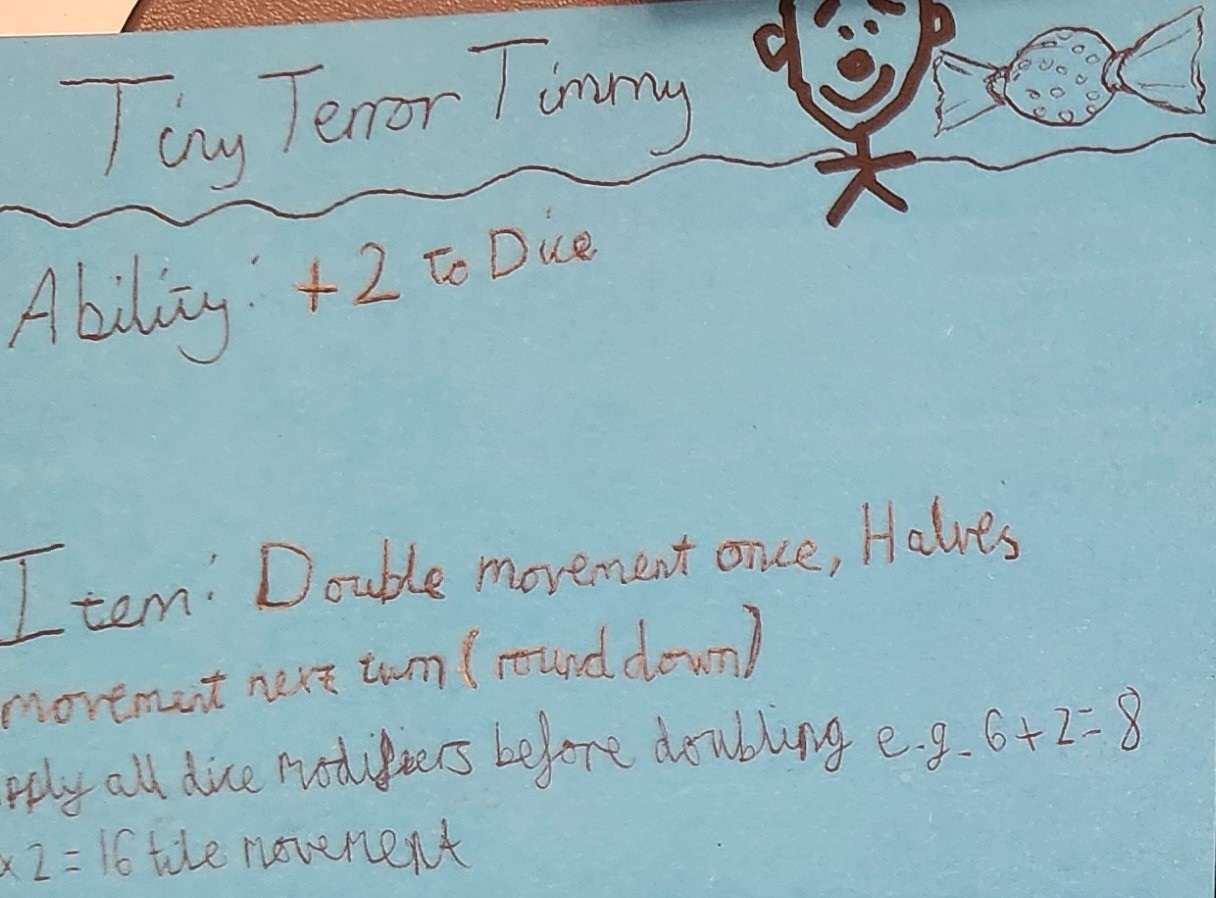 Tiny Terror Timmy
Ability: +2 to Dice
Item: Double movement once, Halves
movement next turn (round down)
pply all dice modifiers before doubling e.g. 6+2=8
x2=16 tile movement